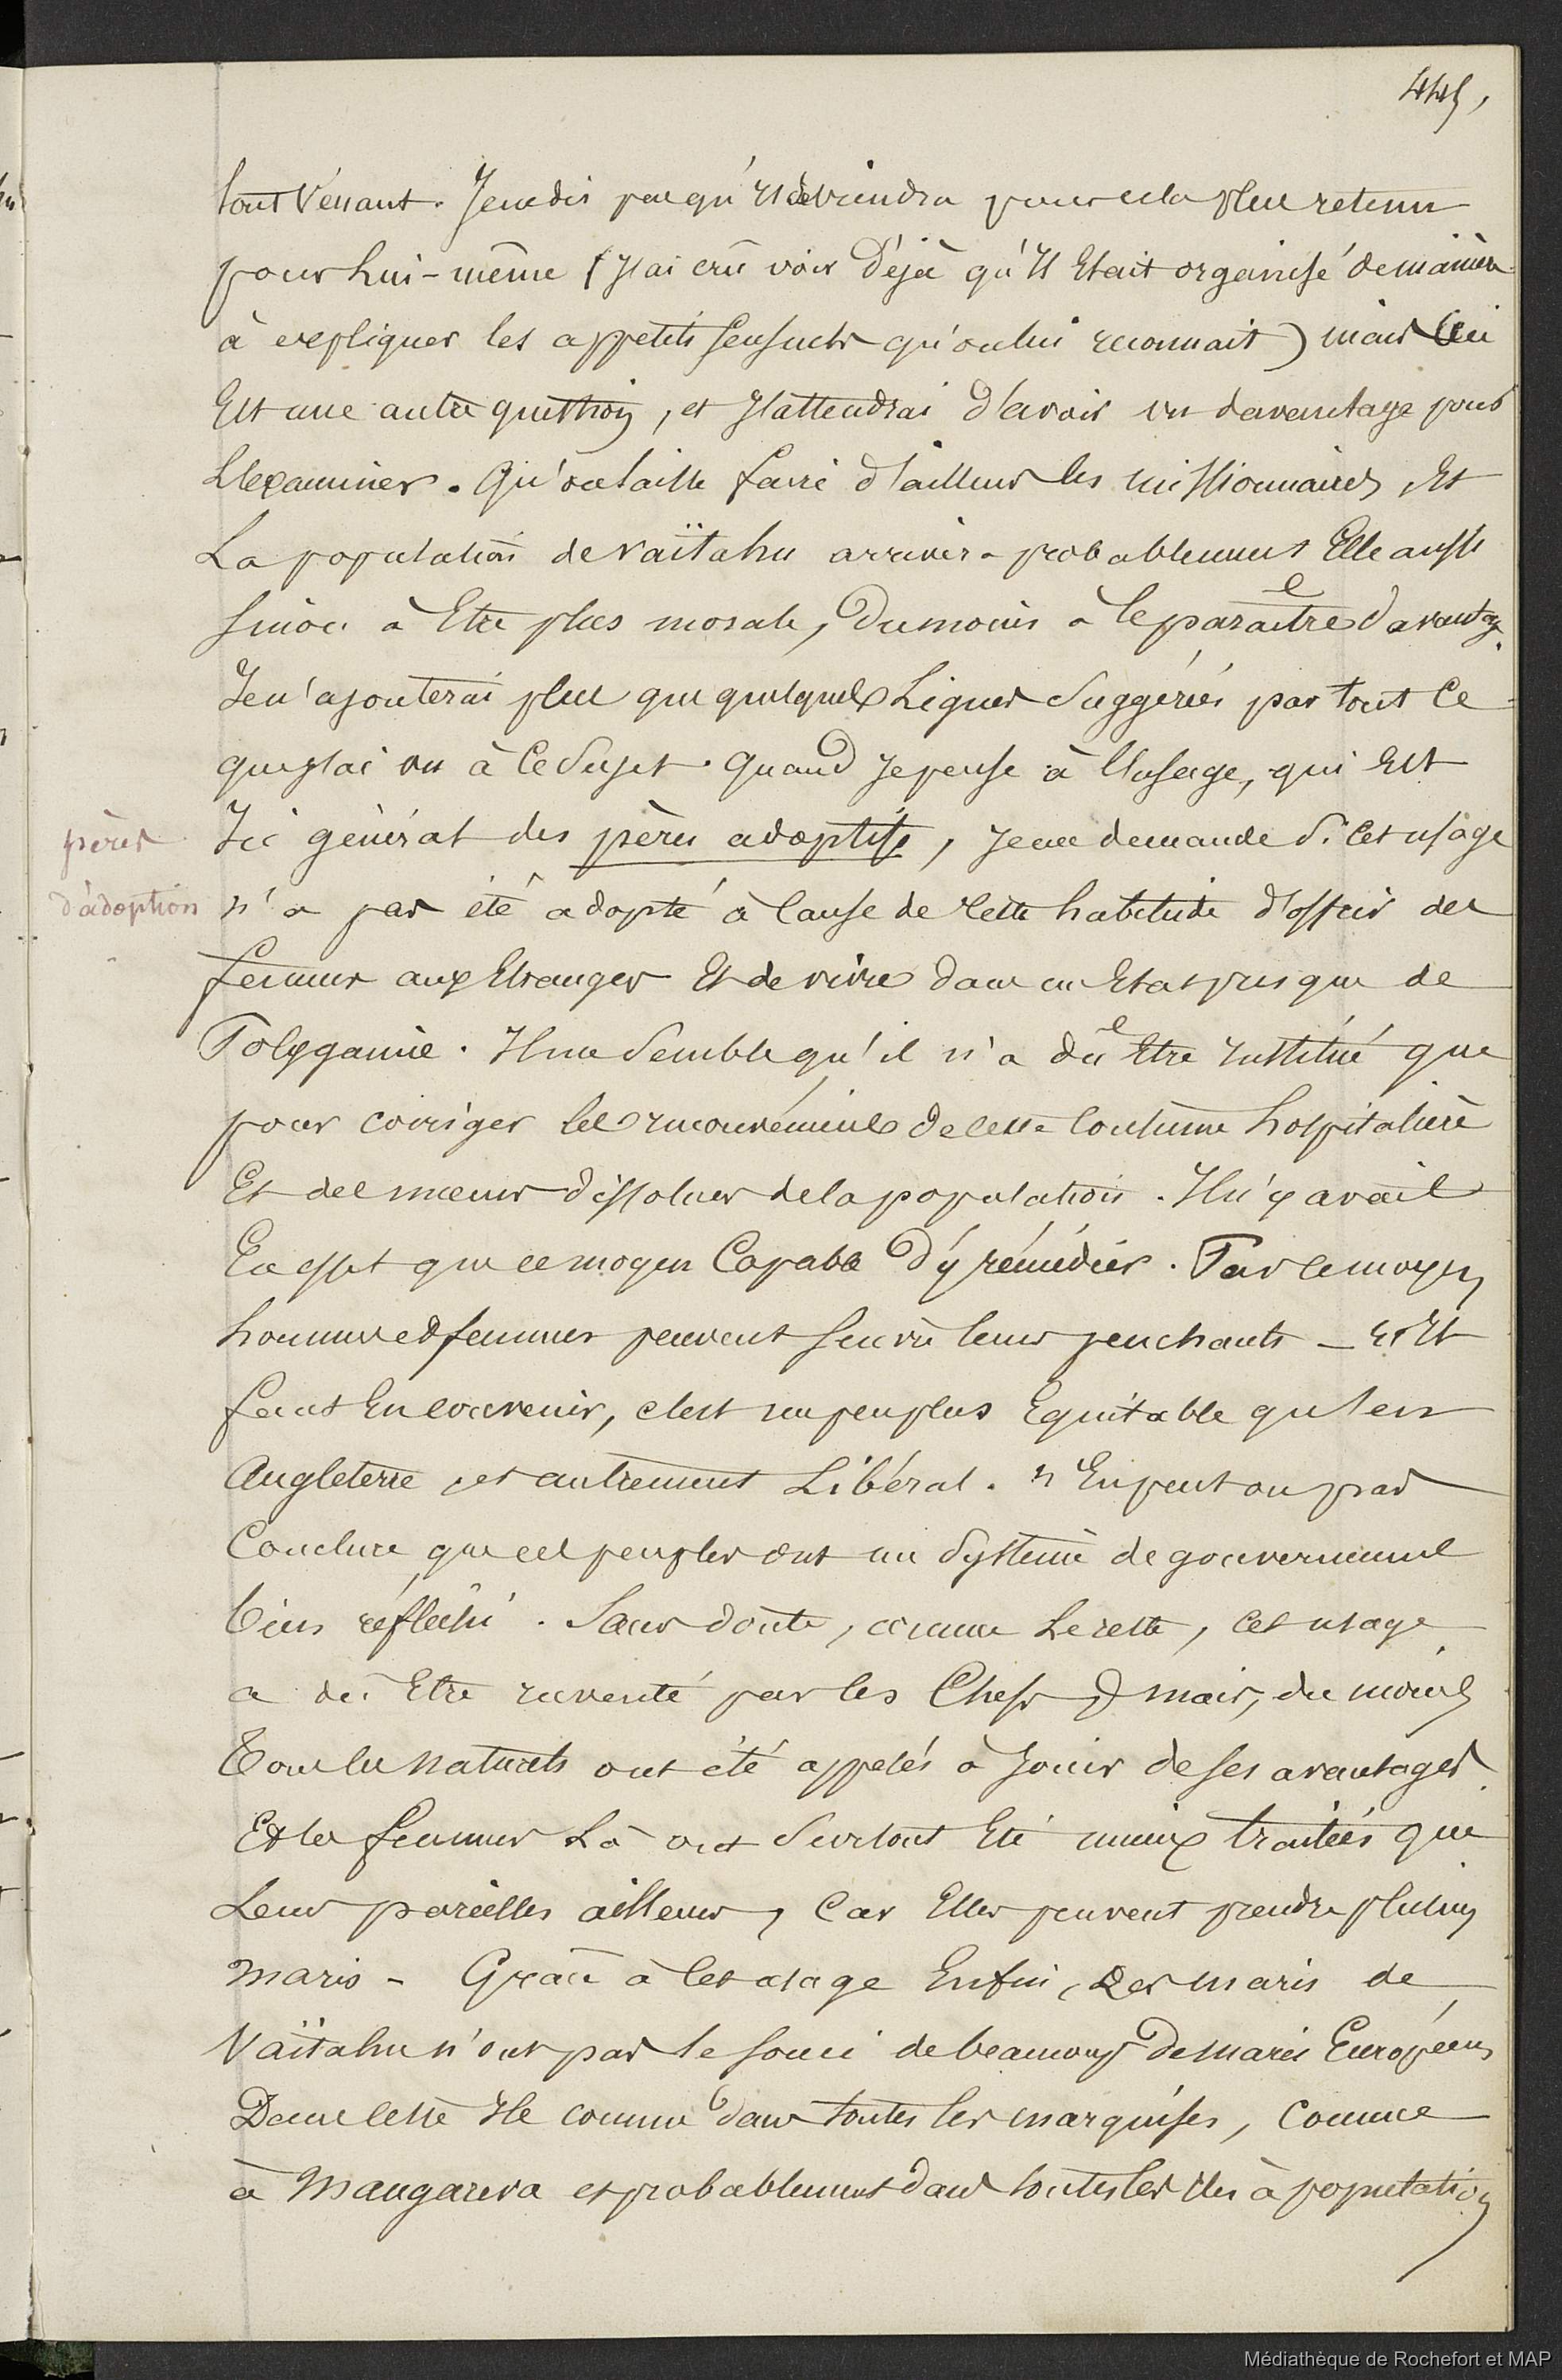 445,
tout Venant. Je ne dis pas qu'Il deviendra pour cela plus retenu
pour Lui-même (J'ai crû voir Déjà qu'Il Etait organisé de manière
à expliquer les appetits sensuels qu'on lui reconnait) mais Ceci
Est une autre question, et J'attendrai d'avoir vu davantage pour
L'Examiner. Qu'on laisse faire d'ailleurs les missionnaires, Et
La population de Vaïtahu arrivera probablement Elle aussi
sinon à Etre plus morale, Du moins à le paraitre Davantage.
Je n'ajouterai plus que quelques Lignes Suggérées par tout Ce
que J'ai vu à Ce Sujet. Quand Je pense à l'Usage, qui Est
Ici général des pères adoptifs, Je me demande Si Cet usage
pères
d'adoption
n'a pas été adopté à Cause de Cette habitude D'offrir des
femmes aux Etrangers Et de vivre Dans un Etat presque de
Polygamie. Il me Semble qu'il n'a dû Etre Institué que
pour corriger les Inconvénients De cette Coutume hospitalière
Et des mœurs Dissolues de la population. Il n'y avait
En effet que ce moyen Capable D'y rémédier. Par ce moyen,
hommes et femmes peuvent suivre leurs penchants _ Et Il
faut En convenir, c'est un peu plus Equitable qu'en
Angleterre, et autrement Libéral. N'En peut on pas
Conclure que ces peuples ont un Système de gouvernement
bien réfléchi. Sans doute, comme Le reste, Cet usage
a dû Etre inventé par les Chefs, mais, du moins
Tous les Naturels ont été appelés à Jouir de ses avantages.
Et les femmes Là ont Surtout Eté mieux traitées que
Leurs pareilles ailleurs, Car Elles peuvent prendre plusieurs
maris - Grâce à Cet usage Enfin, Les maris de
Vaïtahu n'ont pas le souci de beaucoup De maris Européens
Dans cette Ile comme Dans toutes les marquises, Comme
à Mangareva et probablement dans toutes les Iles à population
Médiathèque de Rochefort et MAP